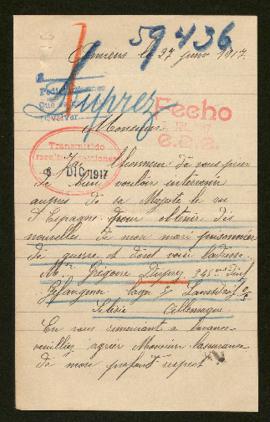 59436
Amiens le 27 juin 1917.
Duprez
Fecho
Monsieur
Transmitido
9 DIC 1917
J'ai l'honneur de vous prier
de bien vouloir intervenir
auprès de Sa Majesté le roi
d'Espagne pour obtenir des
nouvelles de mon mari prisonnier
de guerre et dont voici l'adresse
Mr Grégoire Duprez
Gefangener Lager
Silésie Allemagne
En vous remerciant à l'avance
veuillez agréer Monsieur l'assurance
de mon profond respect